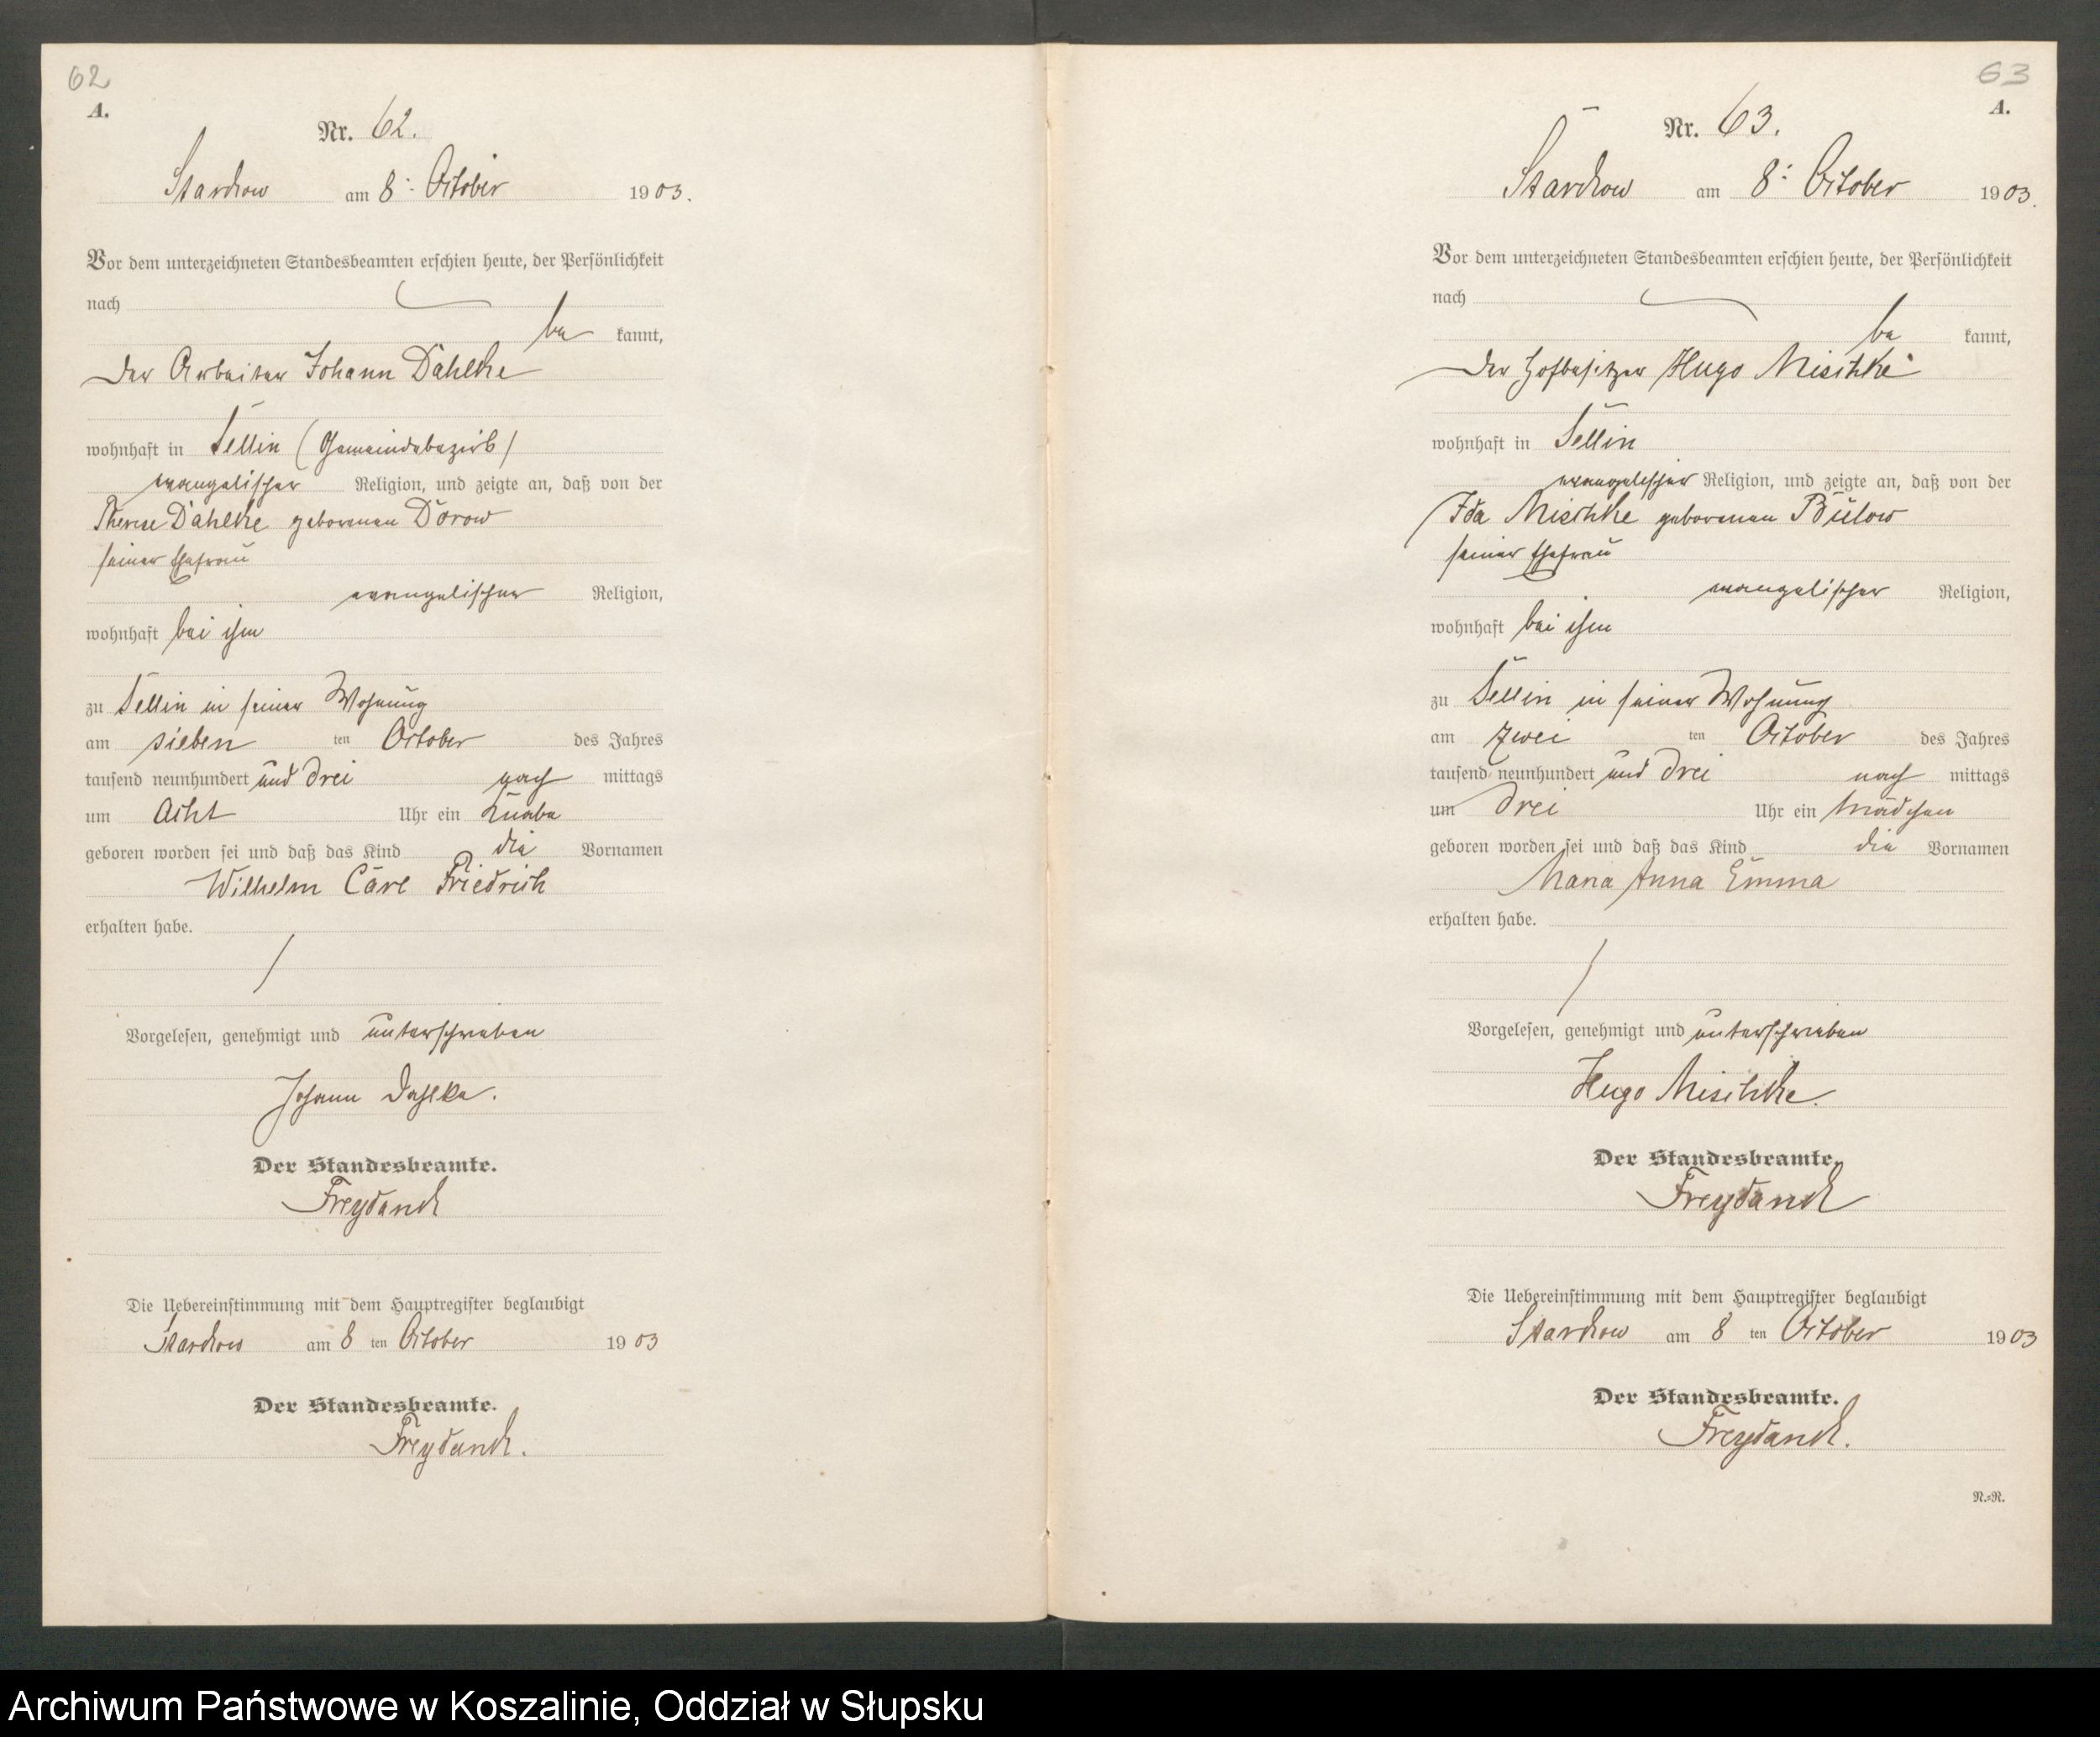 62
A.
Nr. 62.
Starckow am 8. October 1903.
Vor dem unterzeichneten Standesbeamten erschien heute, der Persönlichkeit
nach
be kannt,
der Arbeiter Johann Dahlke
wohnhaft in Sellin (Gemeindebezirk)
evangelischer Religion, und zeigte an, daß von der
Therese Dahlke geborenen Dorow
seiner Ehefrau
evangelischer Religion,
wohnhaft bei ihm
zu Sellin in seiner Wohnung
am sieben ten October des Jahres
tausend neunhundert und drei nach mittags
um Acht Uhr ein Knabe
geboren worden sei und daß das Kind die Vornamen
Wilhelm Carl Friedrich
erhalten habe.
Vorgelesen, genehmigt und unterschrieben
Johann Dahlke.
Der Standesbeamte.
Freydanck
Die Uebereinstimmung mit dem Hauptregister beglaubigt
Starckow am 8 ten October 1903
Der Standesbeamte.
Freydanck.
63
A.
Nr. 63.
Starckow am 8. October 1903.
Vor dem unterzeichneten Standesbeamten erschien heute, der Persönlichkeit
nach
be kannt,
der Hofbesitzer Hugo Mischke
wohnhaft in Sellin
evangelischer Religion, und zeigte an, daß von der
Ida Mischke geborenen Bülow
seiner Ehefrau
evangelischer Religion,
wohnhaft bei ihm
zu Sellin in seiner Wohnung
am zwei ten October des Jahres
tausend neunhundert und drei nach mittags
um drei Uhr ein Mädchen
geboren worden sei und daß das Kind die Vornamen
Maria Anna Emma
erhalten habe.
Vorgelesen, genehmigt und unterschrieben
Hugo Mischke.
Der Standesbeamte.
Freydanck
Die Uebereinstimmung mit dem Hauptregister beglaubigt
Starckow am 8 ten October 1903
Der Standesbeamte.
Freydanck.
N.=R.
Archiwum Państwowe w Koszalinie, Oddział w Słupsku